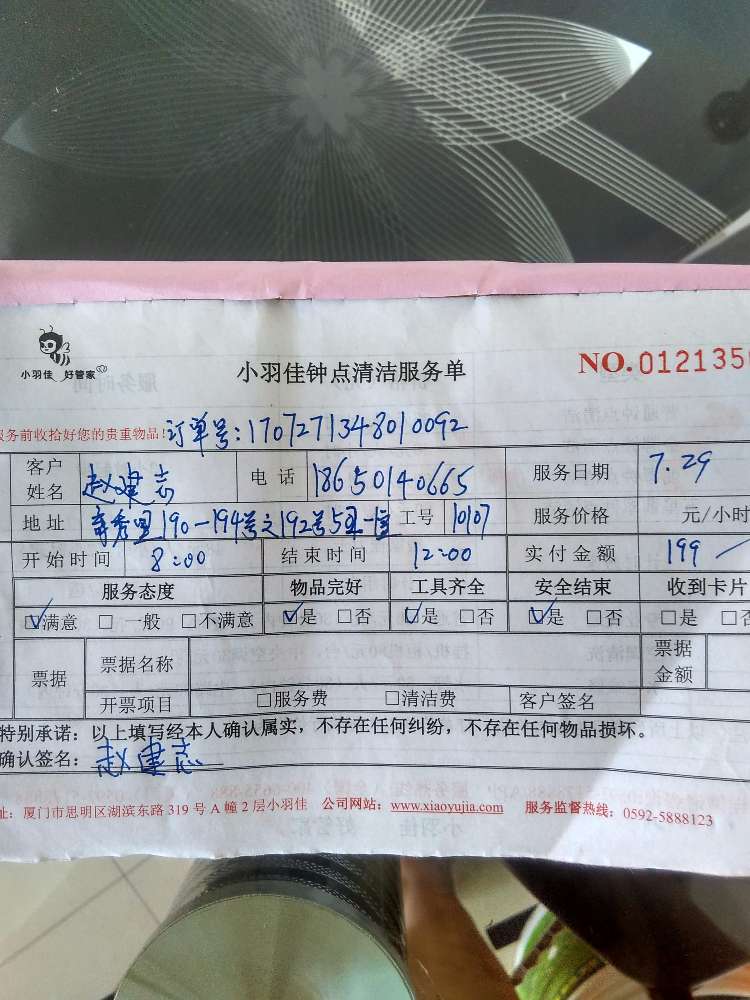 小羽佳 好管家
小羽佳钟点清洁服务单
NO.012135
务前收拾好您的贵重物品! 订单号:1707271348010092
客户姓名 赵建志 电话 18650140665 服务日期 7.29
地址 秀里190-194号之192号5 工号 10107 服务价格 元/小时
开始时间 8:00 结束时间 12:00 实付金额 199
服务态度 物品完好 工具齐全 安全结束 收到卡片
☑满意 □一般 □不满意 ☑是 □否 ☑是 □否 ☑是 □否 □是 □否
票据 票据名称 票据金额
开票项目 □服务费 □清洁费 客户签名
特别承诺：以上填写经本人确认属实，不存在任何纠纷，不存在任何物品损坏。
确认签名：赵建志
址：厦门市思明区湖滨东路 319 号 A 幢 2 层小羽佳 公司网站：www.xiaoyujia.com 服务监督热线：0592-5888123